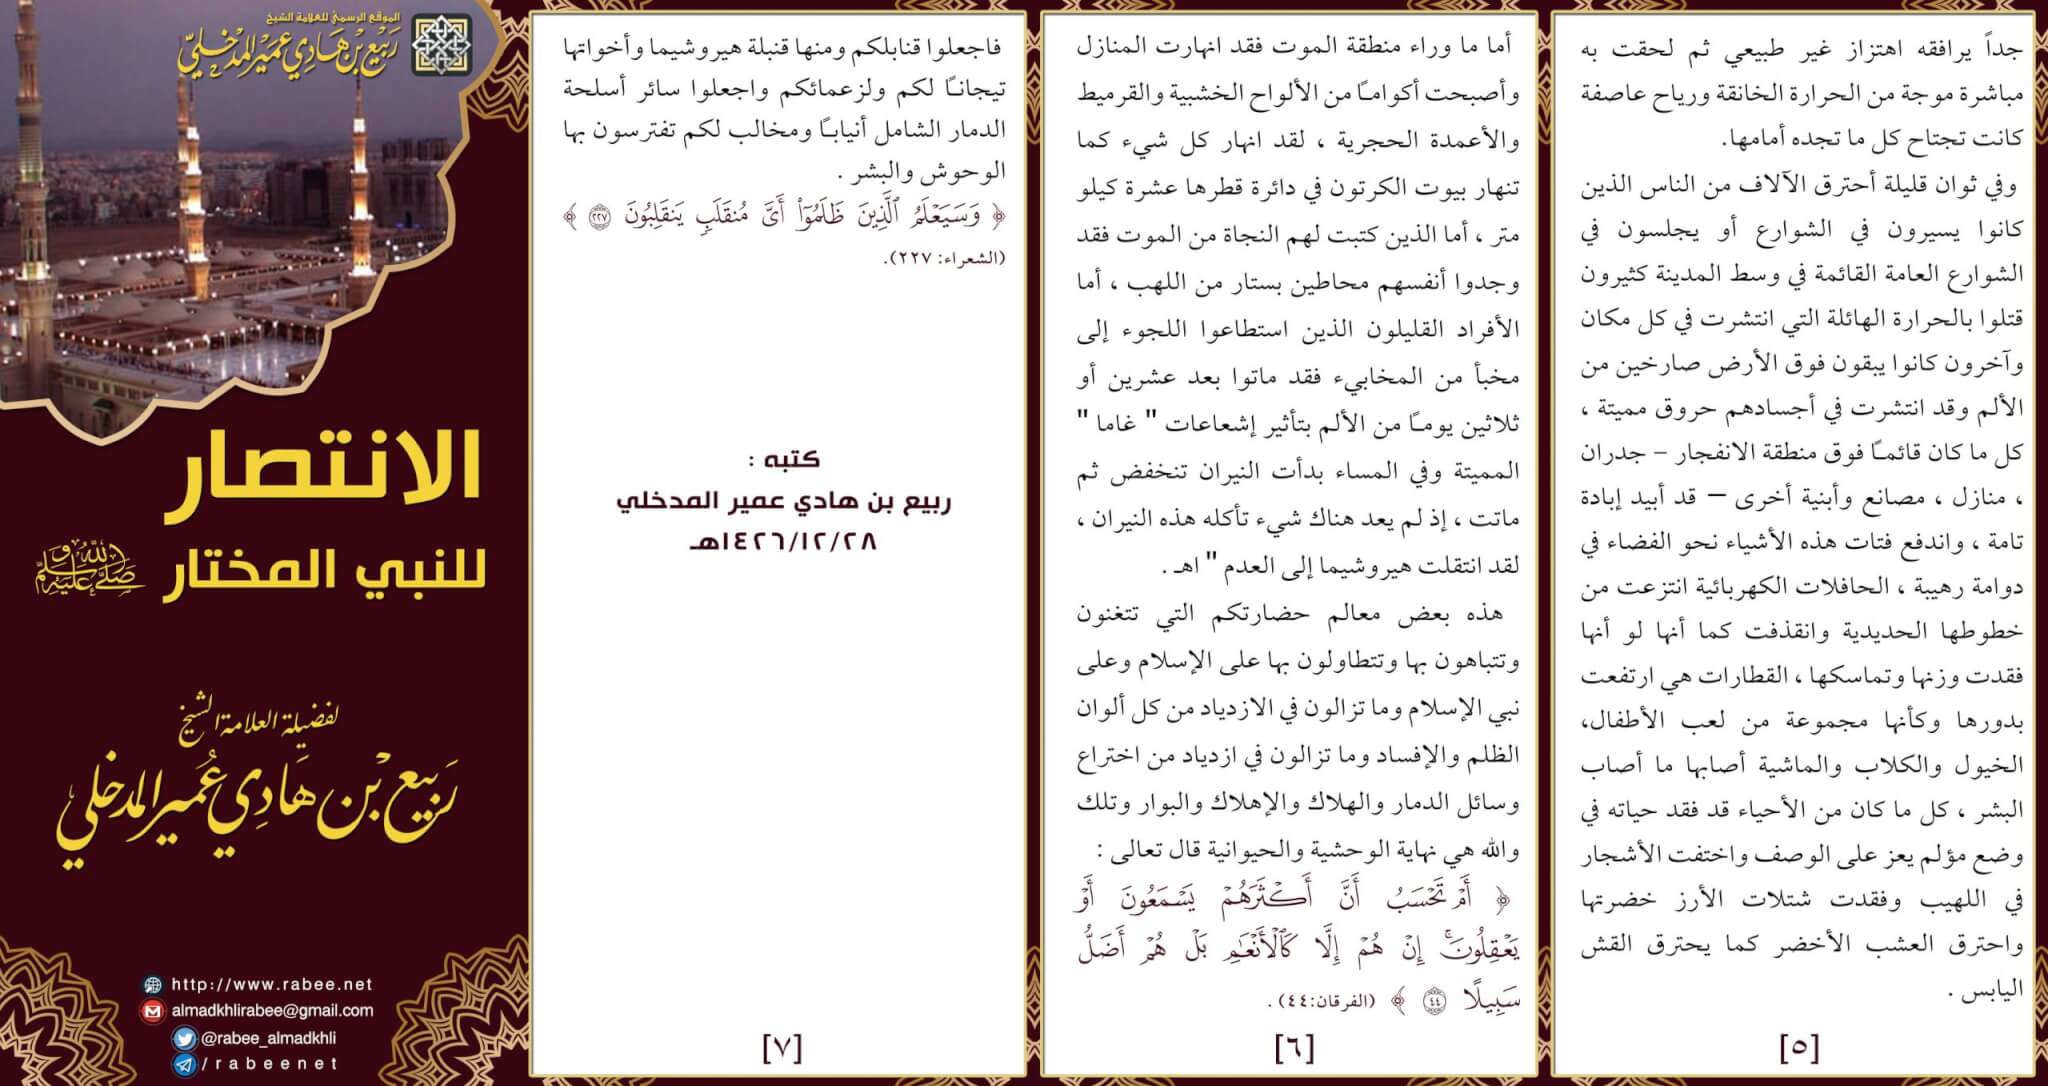 جداً يرافقه اهتزاز غير طبيعي ثم لحقت به
مباشرة موجة من الحرارة الخانقة ورياح عاصفة
كانت تجتاح كل ما تجده أمامها.
وفي ثوان قليلة أحترق الآلاف من الناس الذين
كانوا يسيرون في الشوارع أو يجلسون في
الشوارع العامة القائمة في وسط المدينة كثيرون
قتلوا بالحرارة الهائلة التي انتشرت في كل مكان
وآخرون كانوا يبقون فوق الأرض صارخين من
الألم وقد انتشرت في أجسادهم حروق مميتة ،
كل ما كان قائمـًا فوق منطقة الانفجار – جدران
، منازل ، مصانع وأبنية أخرى – قد أبيد إبادة
تامة ، واندفع فتات هذه الأشياء نحو الفضاء في
دوامة رهيبة ، الحافلات الكهربائية انتزعت من
خطوطها الحديدية وانقذفت كما أنها لو أنها
فقدت وزنها وتماسكها ، القطارات هي ارتفعت
بدورها وكأنها مجموعة من لعب الأطفال،
الخيول والكلاب والماشية أصابها ما أصاب
البشر ، كل ما كان من الأحياء قد فقد حياته في
وضع مؤلم يعز على الوصف واختفت الأشجار
في اللهيب وفقدت شتلات الأرز خضرتها
واحترق العشب الأخضر كما يحترق القش
اليابس .
[٥]
أما ما وراء منطقة الموت فقد انهارت المنازل
وأصبحت أكوامـًا من الألواح الخشبية والقرميط
والأعمدة الحجرية ، لقد انهار كل شيء كما
تنهار بيوت الكرتون في دائرة قطرها عشرة كيلو
متر ، أما الذين كتبت لهم النجاة من الموت فقد
وجدوا أنفسهم محاطين بستار من اللهب ، أما
الأفراد القليلون الذين استطاعوا اللجوء إلى
مخبأ من المخابيء فقد ماتوا بعد عشرين أو
ثلاثين يومـًا من الألم بتأثير إشعاعات " غاما "
المميتة وفي المساء بدأت النيران تنخفض ثم
ماتت ، إذ لم يعد هناك شيء تأكله هذه النيران ،
لقد انتقلت هيروشيما إلى العدم " اهـ .
هذه بعض معالم حضارتكم التي تتغنون
وتتباهون بها وتتطاولون بها على الإسلام وعلى
نبي الإسلام وما تزالون في الازدياد من كل ألوان
الظلم والإفساد وما تزالون في ازدياد من اختراع
وسائل الدمار والهلاك والإهلاك والبوار وتلك
والله هي نهاية الوحشية والحيوانية قال تعالى :
﴿ أَمْ تَحْسَبُ أَنَّ أَكْثَرَهُمْ يَسْمَعُونَ أَوْ
يَعْقِلُونَ ۚ إِنْ هُمْ إِلَّا كَالْأَنْعَامِ بَلْ هُمْ أَضَلُّ
سَبِيلًا ٤٤ ﴾ (الفرقان:٤٤) .
[٦]
فاجعلوا قنابلكم ومنها قنبلة هيروشيما وأخواتها
تيجانـًا لكم ولزعمائكم واجعلوا سائر أسلحة
الدمار الشامل أنيابـًا ومخالب لكم تفترسون بها
الوحوش والبشر .
﴿ وَسَيَعْلَمُ الَّذِينَ ظَلَمُوا أَيَّ مُنقَلَبٍ يَنقَلِبُونَ ٢٢٧ ﴾
(الشعراء: ٢٢٧).
كتبه :
ربيع بن هادي عمير المدخلي
١٤٢٦/١٢/٢٨هـ
[٧]
الموقع الرسمي للعلامة الشيخ
ربيع بن هادي عمير المدخلي
الانتصار
للنبي المختار صلى الله عليه وسلم
لفضيلة العلامة الشيخ
ربيع بن هادي عمير المدخلي
http://www.rabee.net
almadkhlirabee@gmail.com
@rabee_almadkhli
/rabeenet